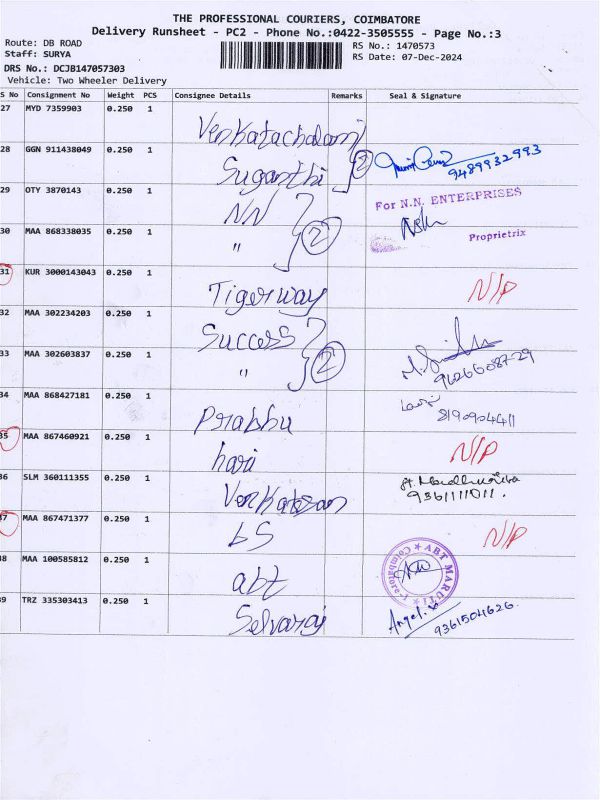 THE PROFESSIONAL COURIERS, COIMBATORE
Delivery Runsheet - PC2 - Phone No.:0422-3505555 - Page No.:3
Route: DB ROAD RS No.: 1470573
Staff: SURYA RS Date: 07-Dec-2024
DRS No.: DCJB147057303
Vehicle: Two Wheeler Delivery
S No Consignment No Weight PCS Consignee Details Remarks Seal & Signature
27 MYD 7359903 0.250 1 Venkatachalam
28 GGN 911438049 0.250 1 Suganthi 2 9489932993
29 OTY 3870143 0.250 1 NN For N.N. ENTERPRISES
30 MAA 868338035 0.250 1 " 2 Proprietrix
31 KUR 3000143043 0.250 1 Tigerway N/P
32 MAA 302234203 0.250 1 Success
33 MAA 302603837 0.250 1 " 2
34 MAA 868427181 0.250 1 Prabhu 8190904411
35 MAA 867460921 0.250 1 hari N/P
36 SLM 360111355 0.250 1 Venkatesan 9361111011.
37 MAA 867471377 0.250 1 bS N/P
38 MAA 100585812 0.250 1 abt ABT MARUTI Coimbatore
39 TRZ 335303413 0.250 1 Selvaraj Angel. 9361504626.